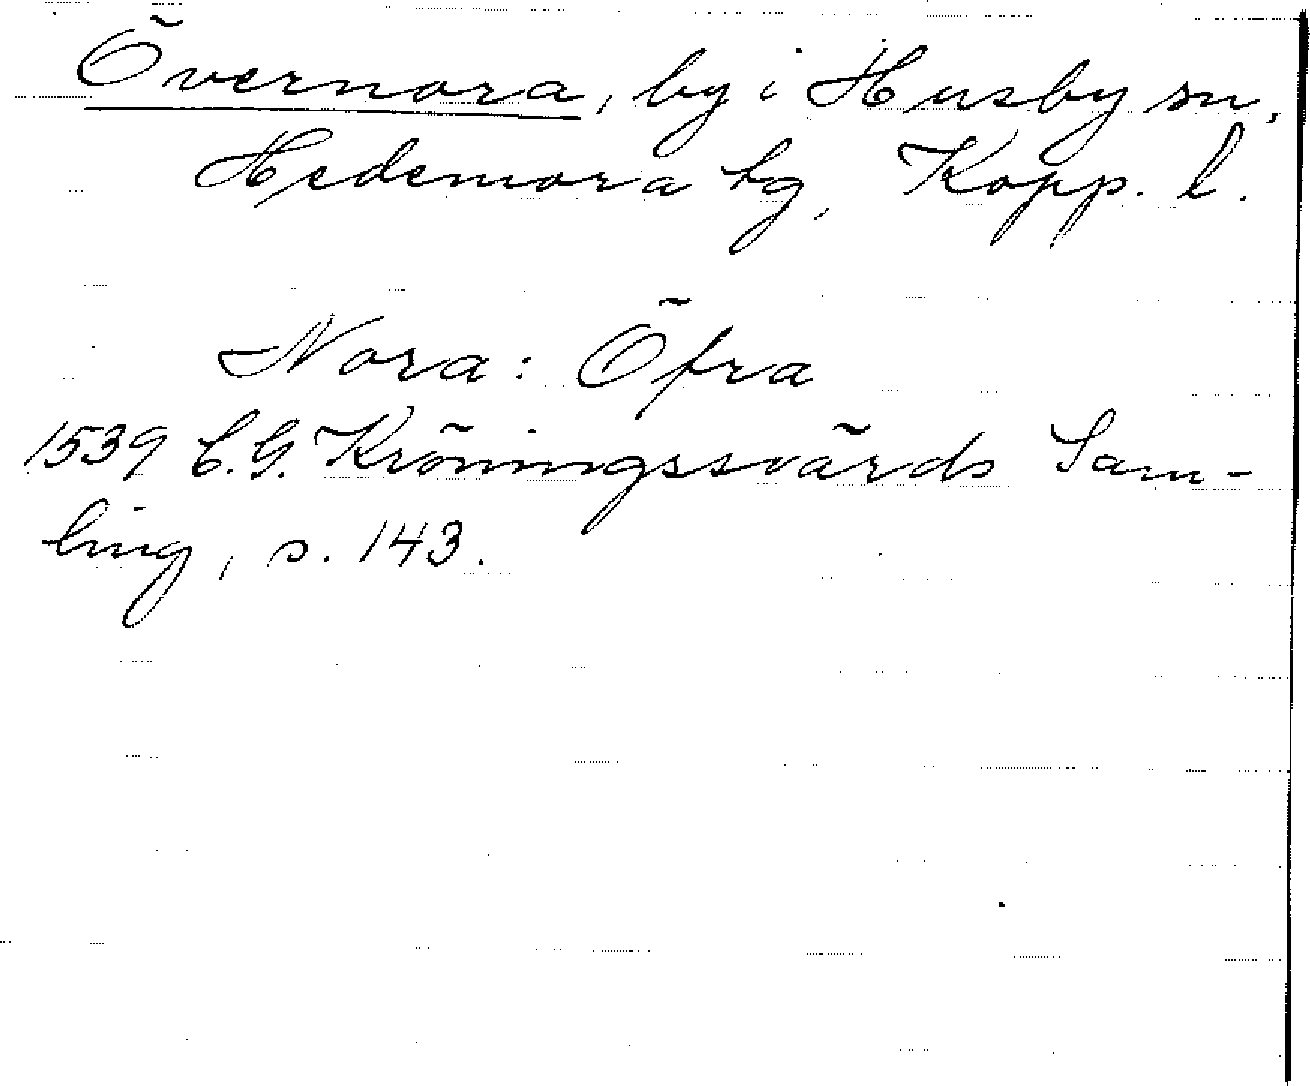 Övernora, by i Husby sn,
Hedemora tg, Kopp. l.
Nora: Öfra
1539 C.G. Kröningssvärds Sam-
ling, s. 143.